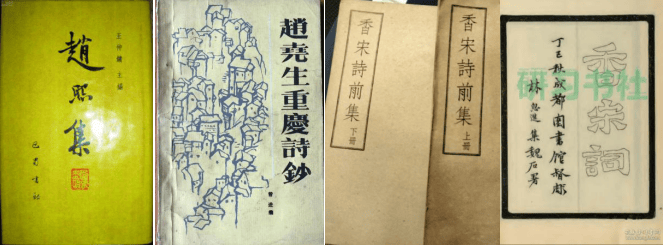 王仲鏞 主編
趙熙集
巴蜀書社
趙堯生重慶詩鈔
香宋詩前集
下册
香宋詩前集
上册
香宋詞
丁巳秋成都圖書館督彫
林思進集魏石署